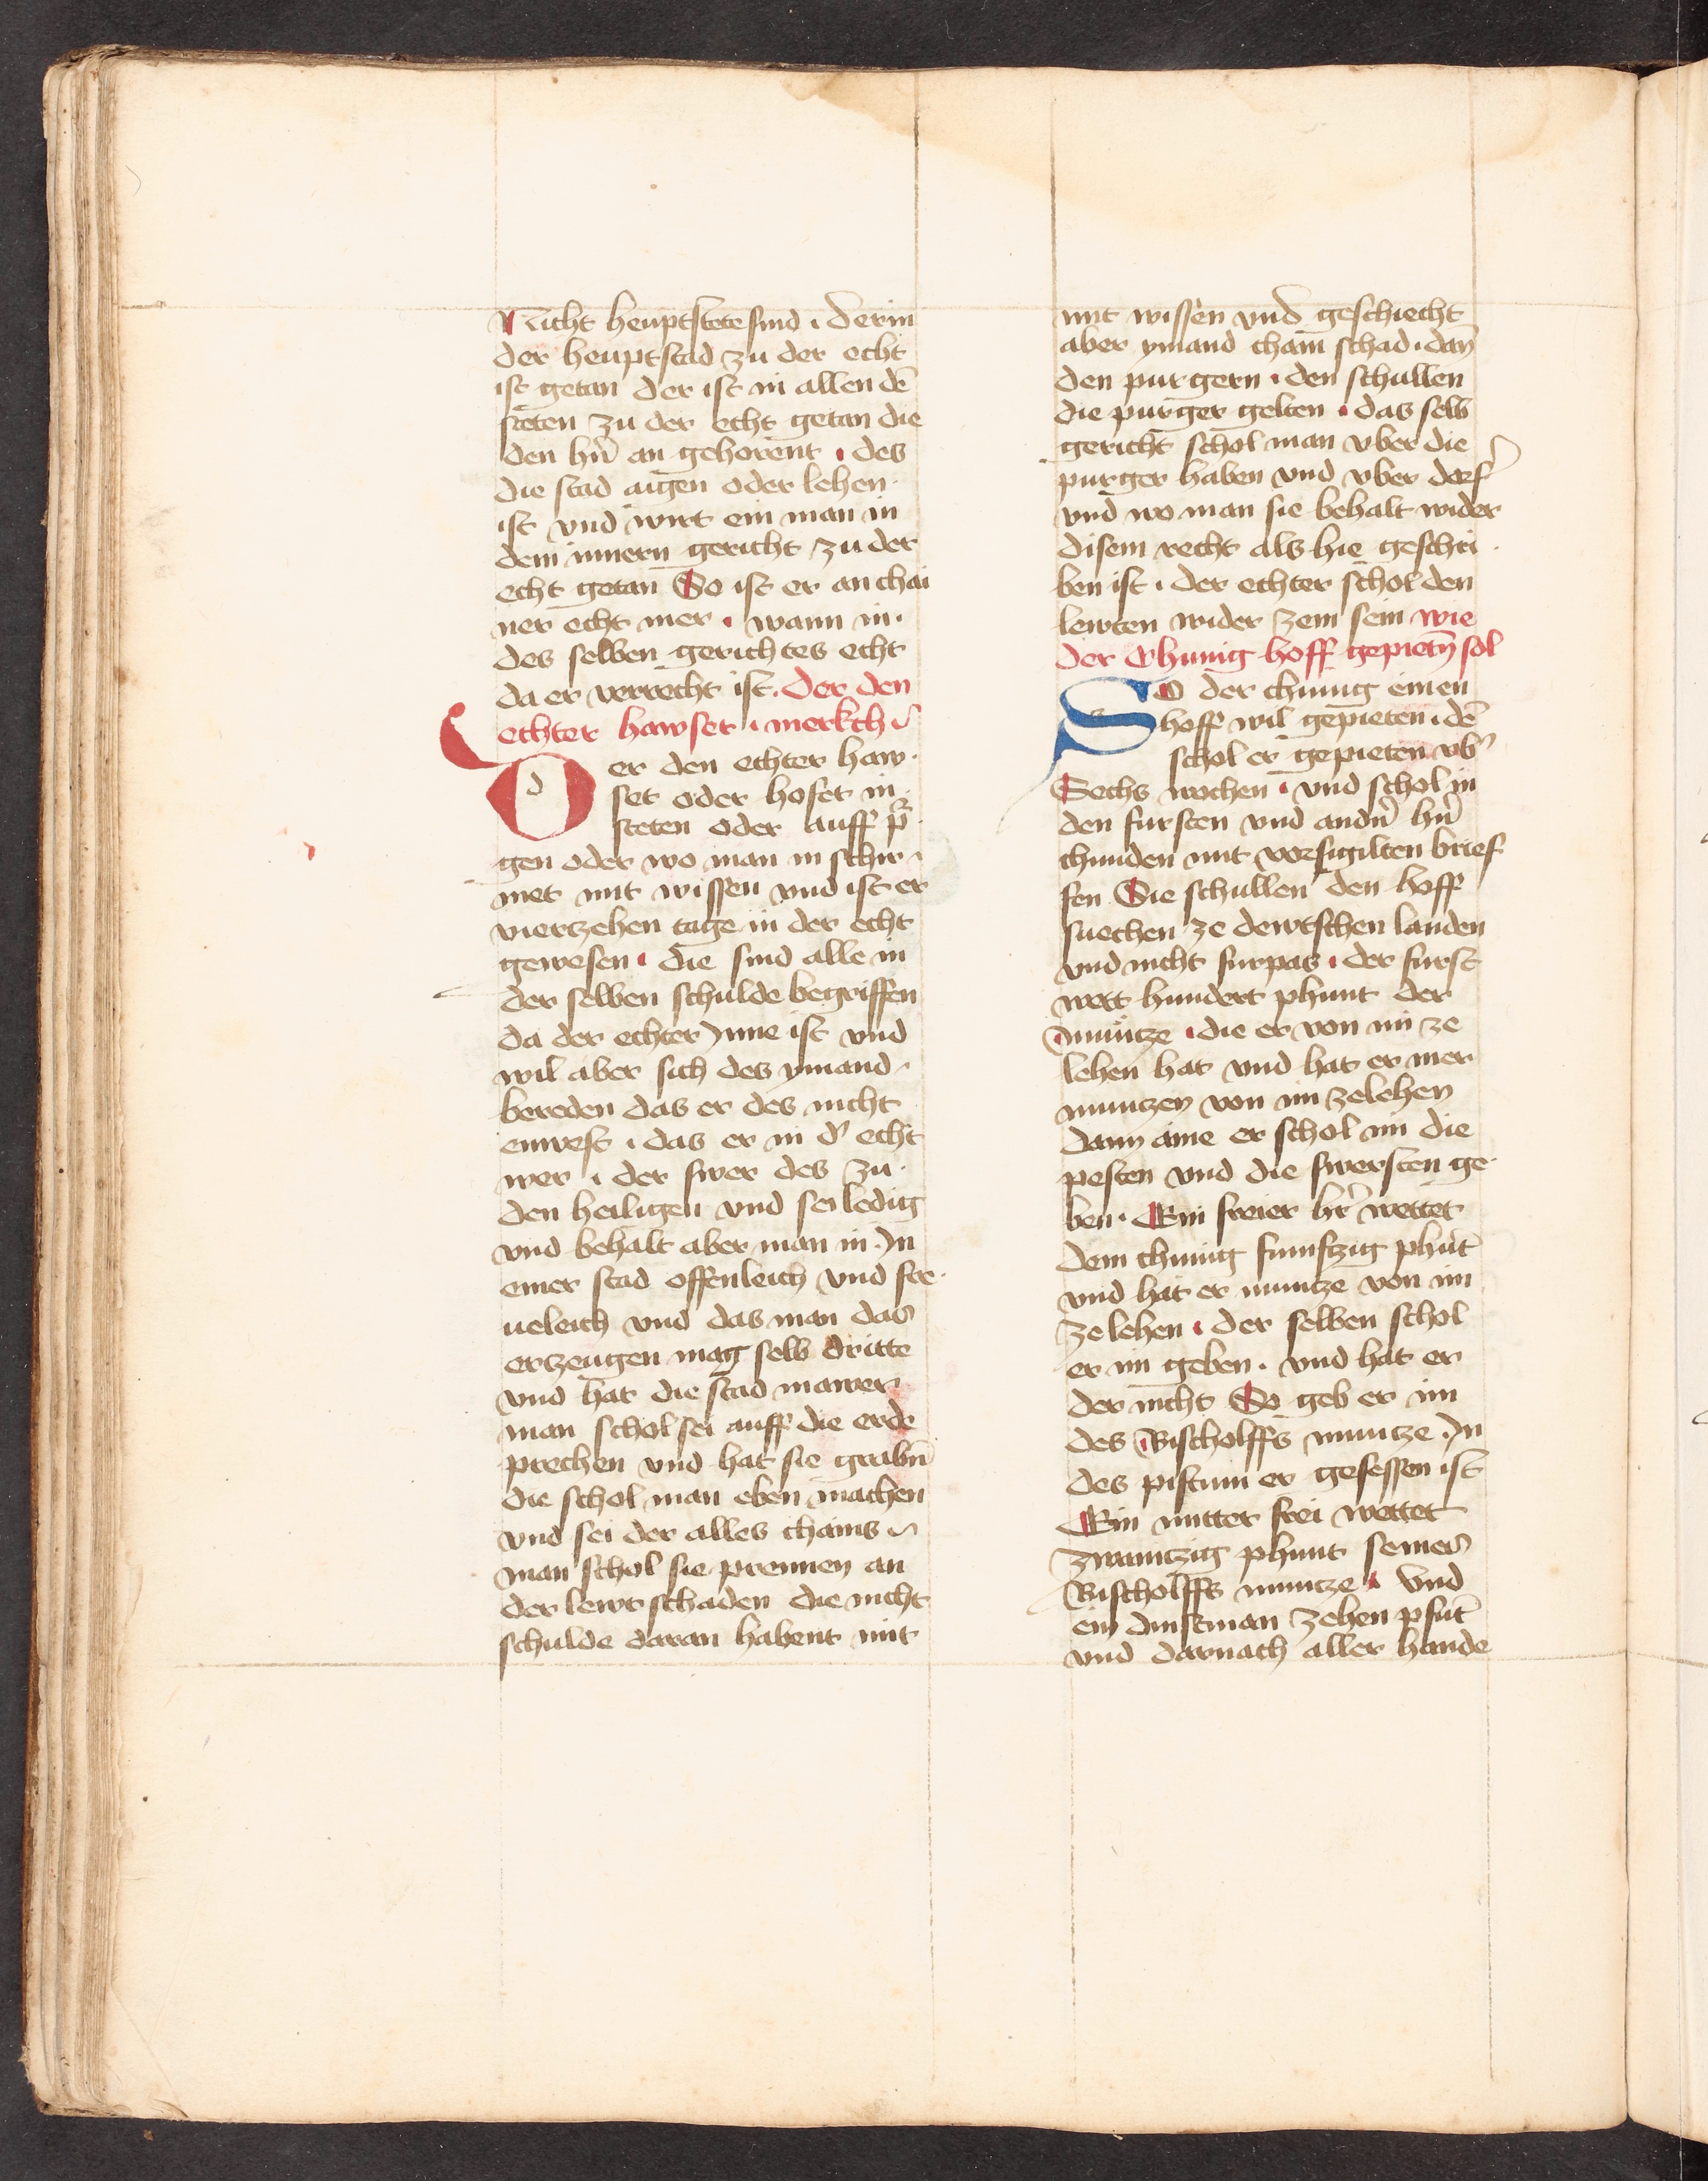 Nicht heuptstete sind · der in
der heuptstad zu der echt
ist getan der ist in allen dē
steten zu der echt getan die
den hñ an gehorent · des
die stad aigen oder lehen·
ist vnd wirt ein man in
dem innern gericht zu der
echt getan So ist er an chai
ner echt mer · wann in·
des selben gerichtes echt
da er verrecht ist. der den
echter hawset · merkch
Der den echter haw·
set oder hofet in·
steten oder auff p̄
gen oder wo man in schir·
met mit wissen vnd ist er
vierzehen tage in der echt
gewesen · die sind alle in
der selben schulde begriffen
da der echter ynne ist vnd
wil aber sich des ymand·
bereden das er des nicht
enwest · das er in d' echt
wer · der swer des zu·
den heiligen vnd sei ledig
vnd behalt aber man in · In
einer stad offenleich vnd fre·
ueleich vnd das man das
erzeugen mag selb dritte
vnd hat die stad mawer
man schol sei auff die erde
prechen vnd hat sie grabñ
die schol man eben machen
vnd sei der alles chains
man schol sie prennen an
der lewt schaden die nicht
schulde daran habent mit
mit wissen vnd geschiecht
aber ymand cham schad · dañ
den purgern · den schullen
die purger gelten · das selb
gericht schol man vber die
purger haben vnd vber dorf'
vnd wo man sie behalt wider
disem recht als hie geschri·
ben ist · der echter schol den
lewten wider zem sein wie
der Chunig hoff gepietñ sol
So der chunig einen
hoff wil gepieten · dē
schol er gepieten vb'
Sechs wochen · vnd schol in
den fursten vnd andñ hñ
chunden mit vorsigilten brief
fen Sie schullen den hoff
suechen ze dewtschen landen
vnd nicht furpas · der furst
wett hundert phunt der
muntze · die er von im ze
lehen hat vnd hat er mer
muntzen von im zelehen
dann aine er schol im die
pesten vnd die swersten ge·
ben· Ein freier hr̄ wettet
dem chunig funfzig phūt
vnd hat er muntze von im
ze lehen · der selben schol
er im geben · vnd hat er
der nicht So geb er im
des Bischolffs muntze · In
des pistum er gesessen ist
Ein mitter frei wettet
zwaintzig phunt seines
Bischolffs muntze · Vnd
ein dinstman zehen pfūt
vnd darnach aller hande